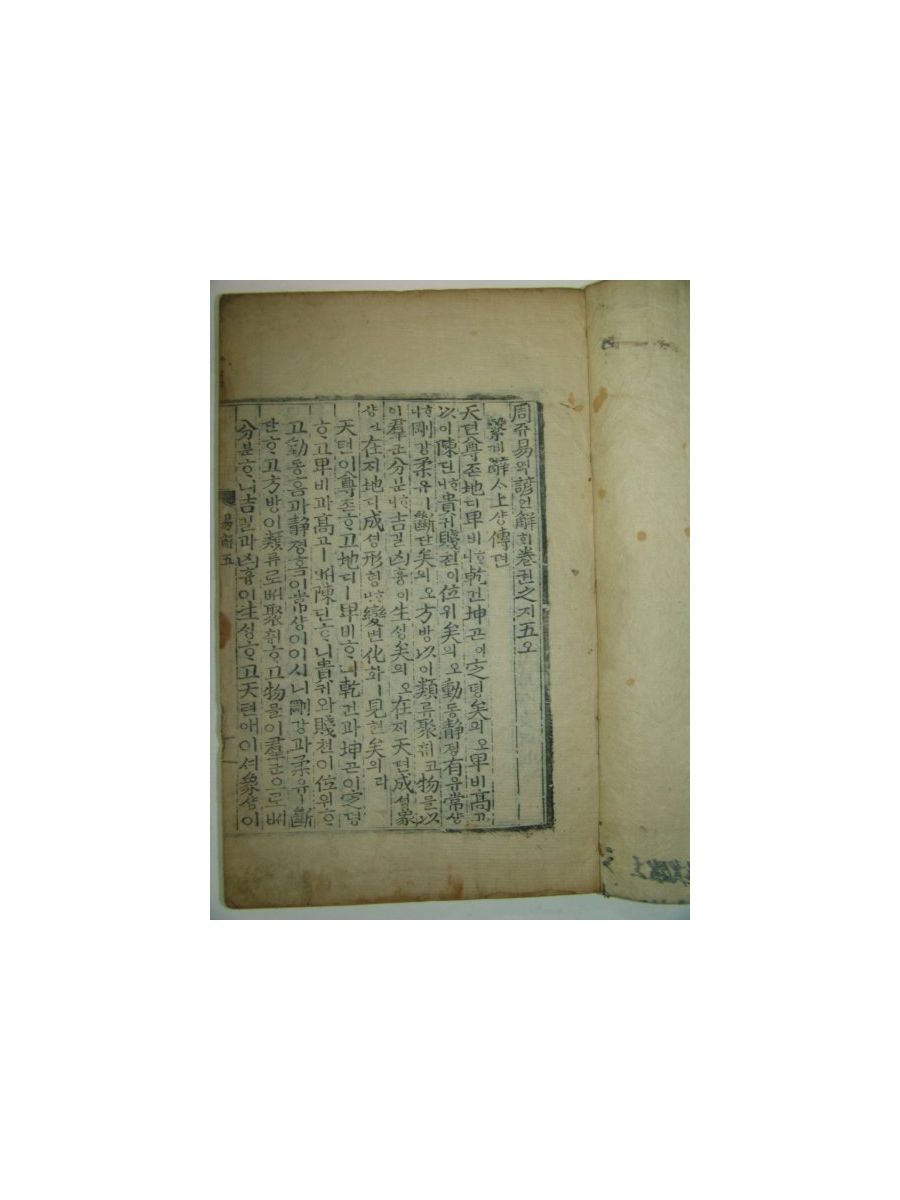 周쥬易역諺언解ᄒᆡ卷권之지五오
繫계辭ᄉᆞ上샹傳뎐
天텬尊존地디卑비ᄒᆞ니乾건坤곤이定뎡矣의오卑비高고
以이陳딘ᄒᆞ니貴귀賤쳔이位위矣의오動동靜졍有유常샹
ᄒᆞ니剛강柔유ㅣ斷단矣의오方방以이類류聚취코物믈以
이羣군分분ᄒᆞ니吉길凶흉이生ᄉᆡᆼ矣의오在ᄌᆡ天텬成셩象
샹在ᄌᆡ地디成셩形형ᄒᆞ니變변化화ㅣ見현矣의라
天텬이尊존ᄒᆞ고地디ㅣ卑비ᄒᆞ니乾건과坤곤이定뎡
ᄒᆞ고卑비과高고ㅣᄡᅥ陳딘ᄒᆞ니貴귀와賤쳔이位위ᄒᆞ
고動동홈과靜졍홈이常샹이이시니剛강과柔유ㅣ斷
단ᄒᆞ고方방이類류로ᄡᅥ聚취ᄒᆞ고物믈이羣군으로ᄡᅥ
分분ᄒᆞ니吉길과凶흉이生ᄉᆡᆼᄒᆞ고天텬애이셔象샹이
易解五